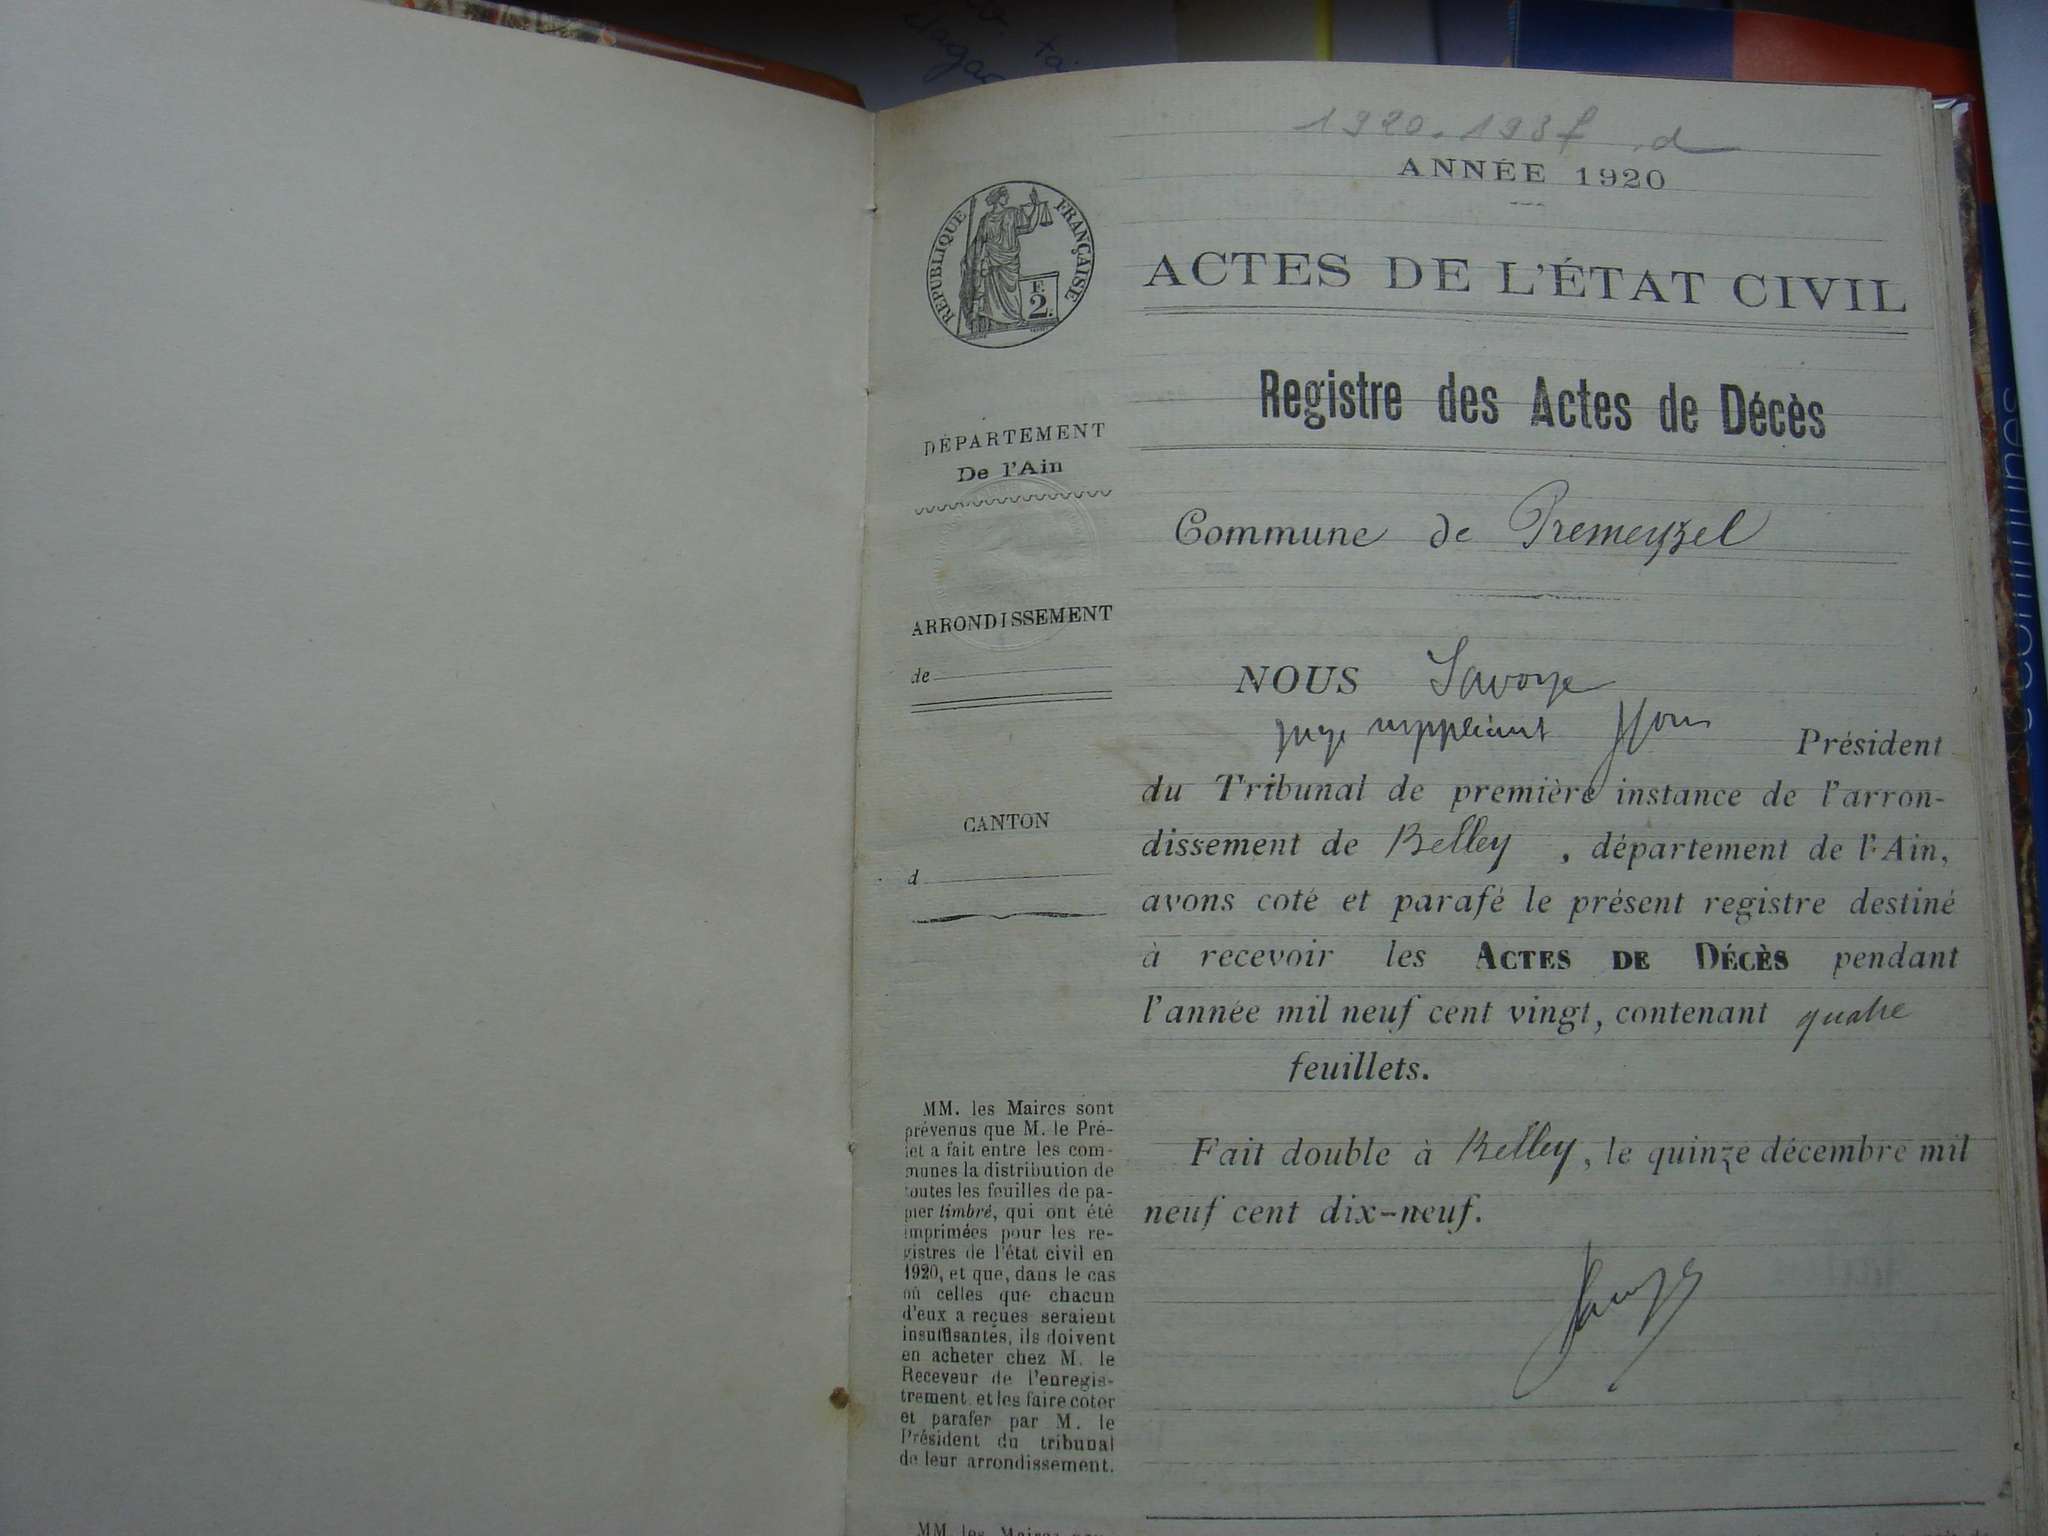 1920.193 d
ANNÉE 1920
RÉPUBLIQUE FRANÇAISE
F.
2.
ACTES DE L'ÉTAT CIVIL
Registre des Actes de Décès
DÉPARTEMENT
De l'Ain
Commune de Premeyzel
ARRONDISSEMENT
de
NOUS Savoye
juge suppléant Président
du Tribunal de première instance de l'arron-
dissement de Belley, département de l'Ain,
avons coté et parafé le présent registre destiné
à recevoir les ACTES DE DÉCÈS pendant
l'année mil neuf cent vingt, contenant quatre
feuillets.
Fait double à Belley, le quinze décembre mil
neuf cent dix-neuf.
CANTON
d
MM. les Maires sont
prévenus que M. le Pré-
fet a fait entre les com-
munes la distribution de
toutes les feuilles de pa-
pier timbré, qui ont été
imprimées pour les re-
gistres de l'état civil en
1920, et que, dans le cas
où celles que chacun
d'eux a reçues seraient
insuffisantes, ils doivent
en acheter chez M. le
Receveur de l'enregis-
trement, et les faire coter
et parafer par M. le
Président du tribunal
de leur arrondissement.
MM. les Maires
communes